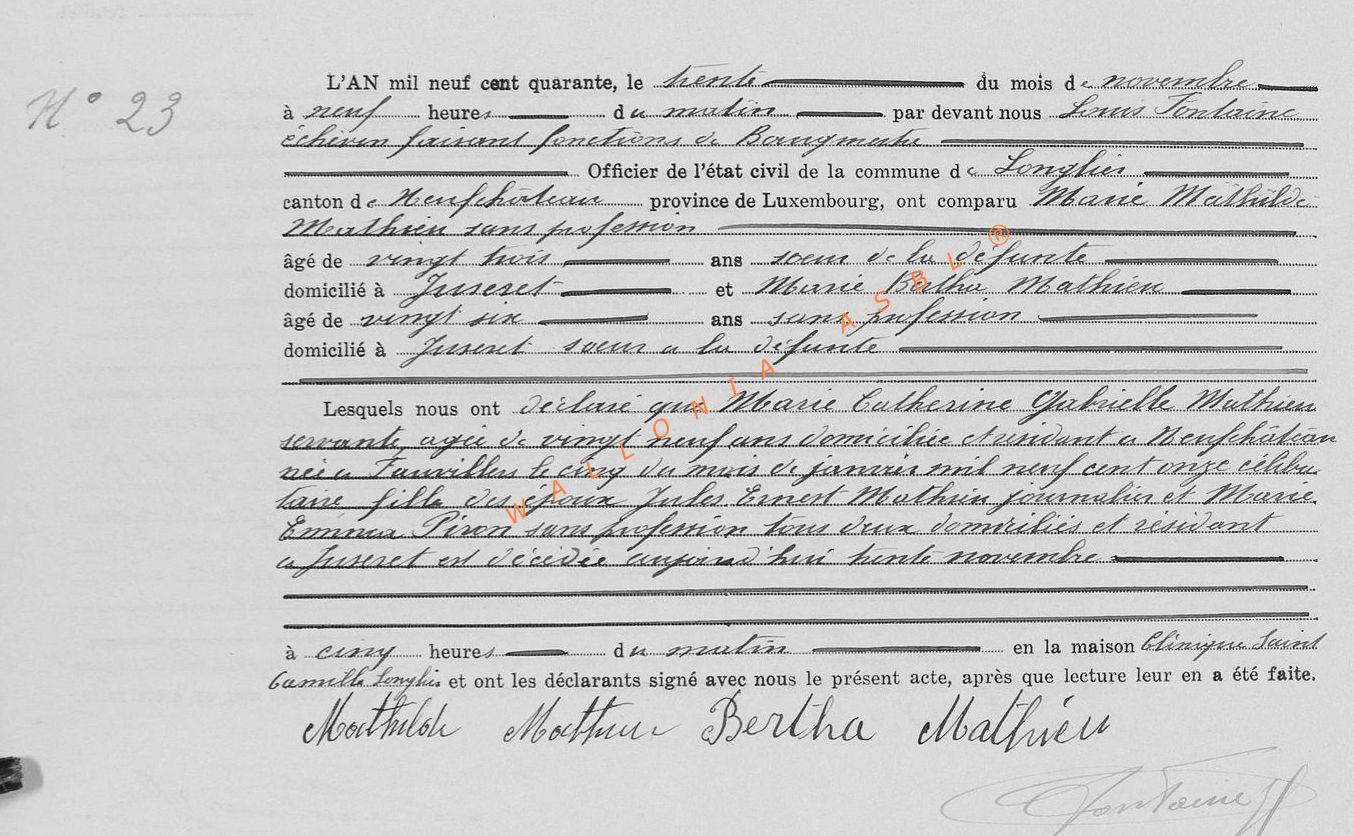 N° 23
L'AN mil neuf cent quarante, le trente du mois de novembre
à neuf heures du matin par devant nous Louis Fontaine
échevin faisant fonctions de Bourgmestre
Officier de l'état civil de la commune de Longlier
canton de Neufchâteau province de Luxembourg, ont comparu Marie Mathilde
Mathieu sans profession
âgé de vingt trois ans soeur de la défunte
domicilié à Juseret et Marie Bertha Mathieu
âgé de vingt six ans sans profession
domicilié à Juseret soeur a la défunte
Lesquels nous ont déclaré que Marie Catherine Gabrielle Mathieu
servante, agée de vingt neuf ans domiciliée et résidant a Neufchâteau
née a Fauvillers le cinq du mois de janvier mil neuf cent onze céliba
taire fille des époux Jules Ernest Mathieu journalier et Marie
Emma Piron sans profession tous deux domiciliés et résidant
a Juseret est décédée aujourd'hui trente novembre
à cinq heures du matin en la maison Clinique Saint
Camille Longlier et ont les déclarants signé avec nous le présent acte, après que lecture leur en a été faite.
Mathilde Mathieu Bertha Mathieu
Fontaine
WALLONIA ASBL ®